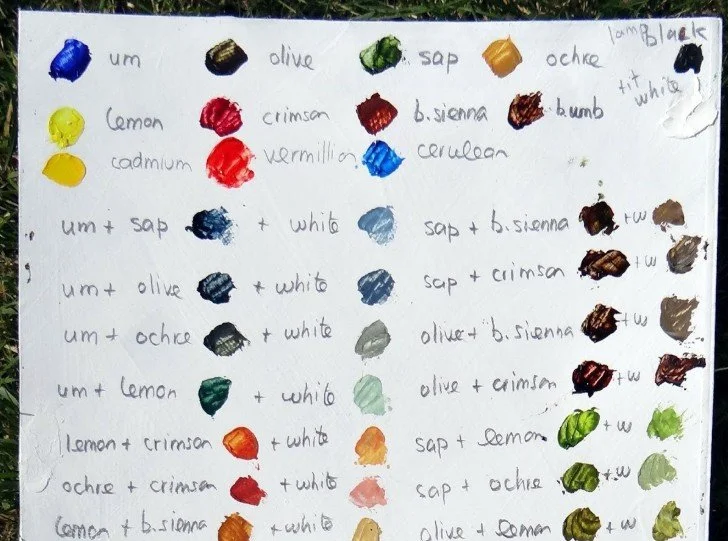 um olive sap ochre lamp Black
lemon crimson b.sienna b.umb tit white
cadmium vermillion cerulean
um + sap + white sap + b.sienna + w
um + olive + white sap + crimson + w
um + ochre + white olive + b.sienna + w
um + lemon + white olive + crimson + w
lemon + crimson + white sap + lemon + w
ochre + crimson + white sap + ochre + w
lemon + b.sienna + white olive + lemon + w